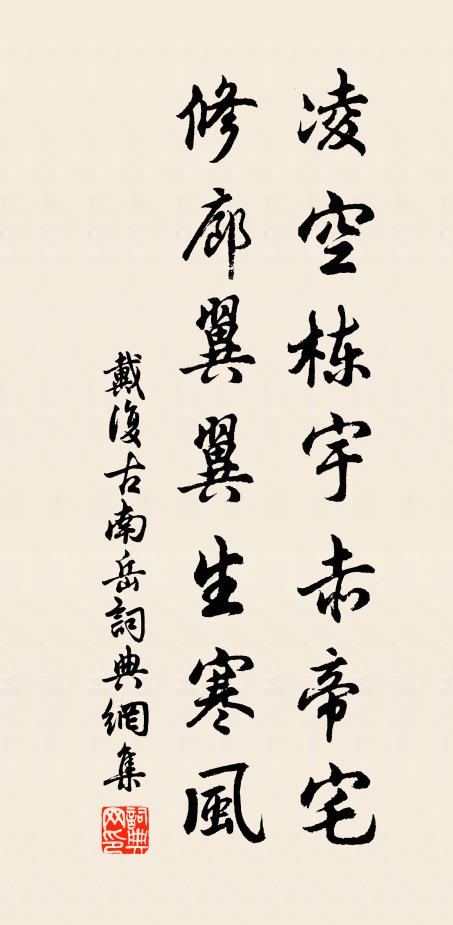 凌空栋宇赤帝宅
修廊翼翼生寒風
戴復古南岳詞典網集
詞典网印